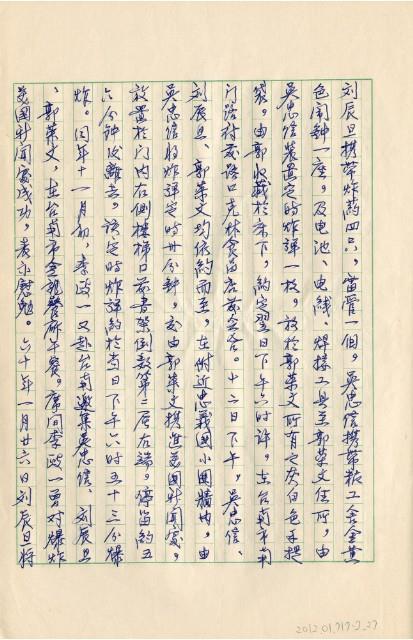 刘辰旦携带炸药四包，雷管一個，吳忠信携帶粘工舍金黄
色闹钟一座，及电池、电线、焊接工具至郭荣文住所，由
吳忠信装置定時炸弹一枚，放於郭荣文所有之灰白色手提
袋，由郭收藏於床下，約定翌日下午六時许，在台南市南
门路村茂路口克林食品店前会合。十二日下午，吳忠信、
刘辰旦、郭荣文均依約而至，在附近忠義國小围牆内，由
吳忠信将炸弹定時卅分鐘，交由郭荣文携進美國新闻處，
放置於门内右侧樓梯口前書架倒数第二层左端，停留約五
六分钟後離去。該定時炸弹約於当日下午六時五十三分爆
炸。同年十一月初，李政一又赴台南邀集吳忠信、刘辰旦
、郭荣文，在台南市全視餐廳午餐。席间李政一曾对爆炸
美國新闻處成功，表示慰勉。六十年一月廿六日刘辰旦将
2012.01.717-J_27